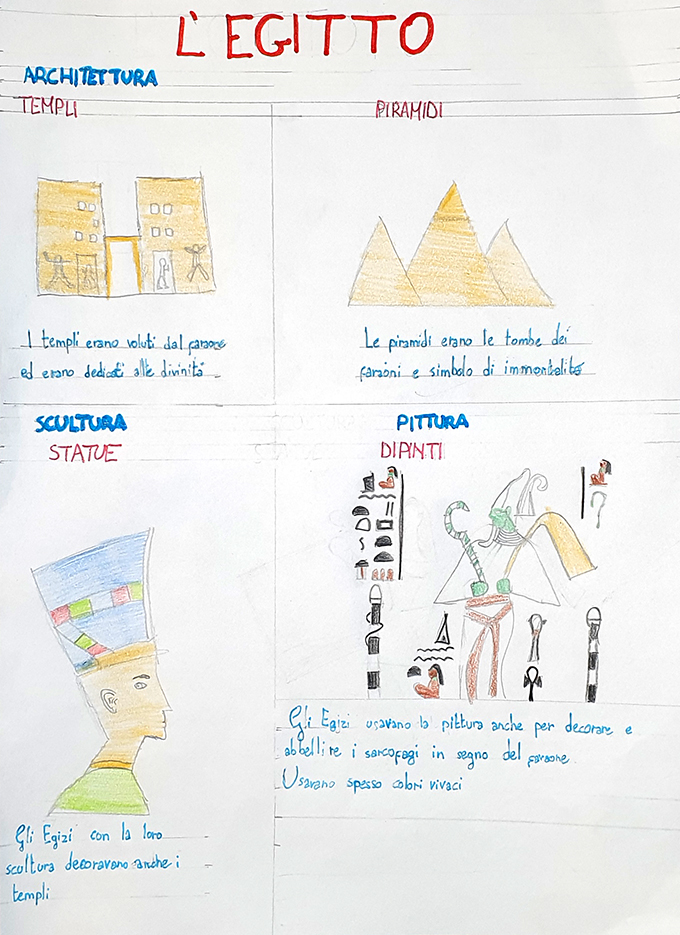 L'EGITTO
ARCHITETTURA
TEMPLI
PIRAMIDI
I templi erano voluti dal faraone
ed erano dedicati alle divinità
Le piramidi erano le tombe dei
faraoni e simbolo di immortalità
SCULTURA
STATUE
Gli Egizi con la loro
scultura decoravano anche i
templi
PITTURA
DIPINTI
Gli Egizi usavano la pittura anche per decorare e
abbellire i sarcofagi in segno del faraone.
Usavano spesso colori vivaci